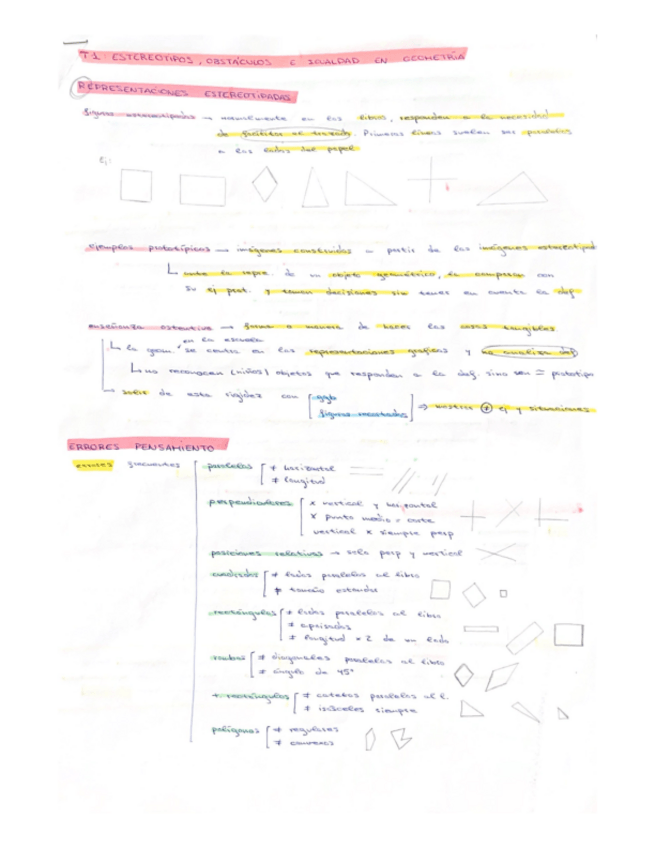 T1. ESTEREOTIPOS, OBSTÁCULOS E IGUALDAD EN GEOMETRÍA
REPRESENTACIONES ESTEREOTIPADAS
figuras estereotipadas → normalmente en los libros, responden a la necesidad
de facilitar el trazado. Primeras líneas suelen ser paralelas
a los lados del papel
Ej:
ejemplos prototípicos → imágenes construidas a partir de las imágenes estereotipad
ante la repre. de un objeto geométrico, la comparan con
su ej prot. y toman decisiones sin tener en cuenta la def
enseñanza ostentiva → forma o manera de hacer las cosas tangibles
en la escuela
la geom. se centra en las representaciones gráficas y no analiza def
no reconocen (niños) objetos que respondan a la def. sino son = prototipo
salir de esta rigidez con [ggb
figuras recortadas] ⇒ mostrar ≠ ej y situaciones
ERRORES PENSAMIENTO
errores frecuentes
paralelas [ ≠ horizontal
≠ longitud
perpendiculares [ x vertical y horizontal
x punto medio = corte
vertical x siempre perp
posiciones relativas → solo perp y vertical
cuadrados [ ≠ lados paralelos al libro
≠ tamaño estándar
rectángulos [ ≠ lados paralelos al libro
≠ apaisados
≠ longitud x 2 de un lado
rombos [ ≠ diagonales paralelas al libro
≠ ángulo de 45°
t. rectángulos [ ≠ catetos paralelos al l.
≠ isósceles siempre
polígonos [ ≠ regulares
≠ convexos